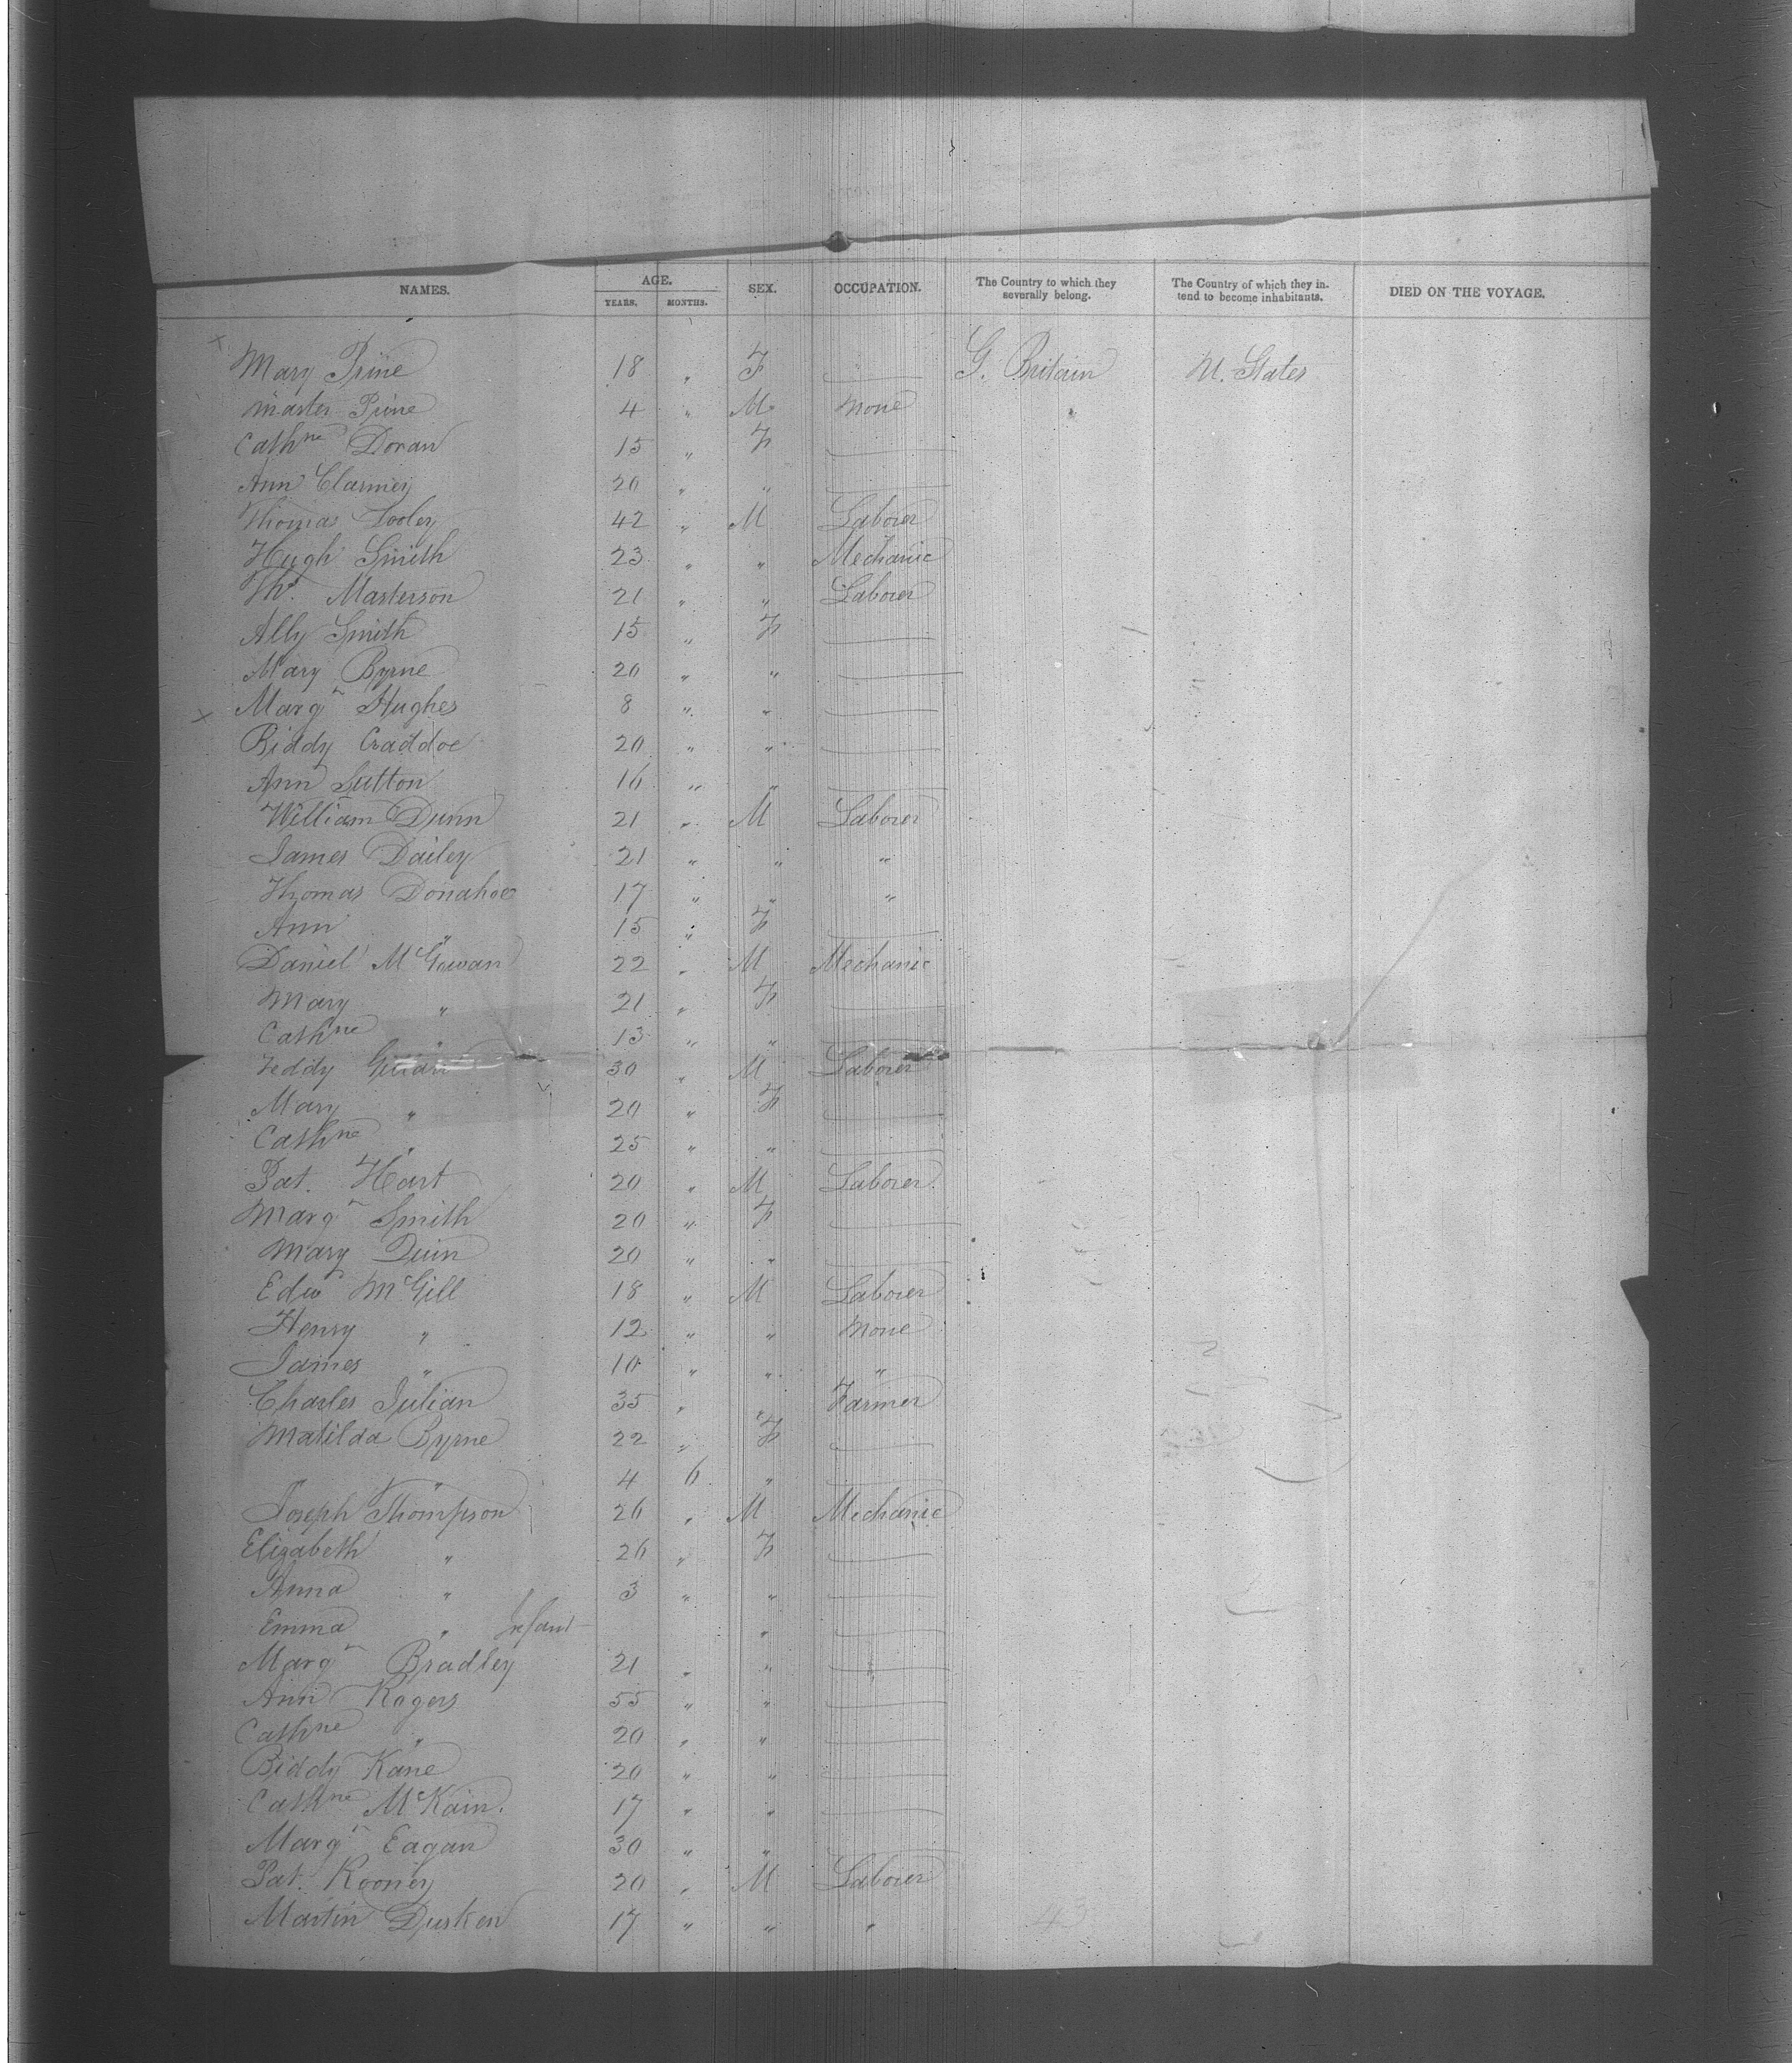 NAMES. AGE. SEX. OCCUPATION. The Country to which they severally belong. The Country of which they intend to become inhabitants. DIED ON THE VOYAGE.
YEARS. MONTHS.
Mary Prine 18 " F — G. Britain U. States
Master Prine 4 " M None
Cathne Doran 15 " F —
Ann Clarney 20 " " —
Thomas Tooley 42 " M Laborer
Hugh Smith 23 " " Mechanic
Ths. Masterson 21 " " Laborer
Ally Smith 15 " F —
Mary Byrne 20 " " —
Margt Hughes 8 " " —
Biddy Craddoc 20 " " —
Ann Sutton 16 " " —
William Dunn 21 " M Laborer
James Dailey 21 " " "
Thomas Donahoe 17 " " "
Ann " 15 " F —
Daniel McGowan 22 " M Mechanic
Mary " 21 " F —
Cathne " 13 " "
Teddy 30 " M Laborer
Mary " 20 " F —
Cathne " 25 " " —
Pat. Hart 20 " M Laborer
Margt Smith 20 " F —
Mary Quin 20 " " —
Edwd McGill 18 " M Laborer
Henry " 12 " " None
James " 10 " " "
Charles Julian 35 " " Farmer
Matilda Byrne 22 " F —
" 4 6 " —
Joseph Thompson 26 " M Mechanic
Elizabeth " 26 " F —
Anna " 3 " " —
Emma " Infant " —
Margt Bradley 21 " " —
Ann Rogers 55 " " —
Cathne " 20 " " —
Biddy Kane 20 " " —
Cathne McKain. 17 " " —
Margt Eagan 30 " " —
Pat. Rooney 20 " M Laborer
Martin Dusken 17 " " "